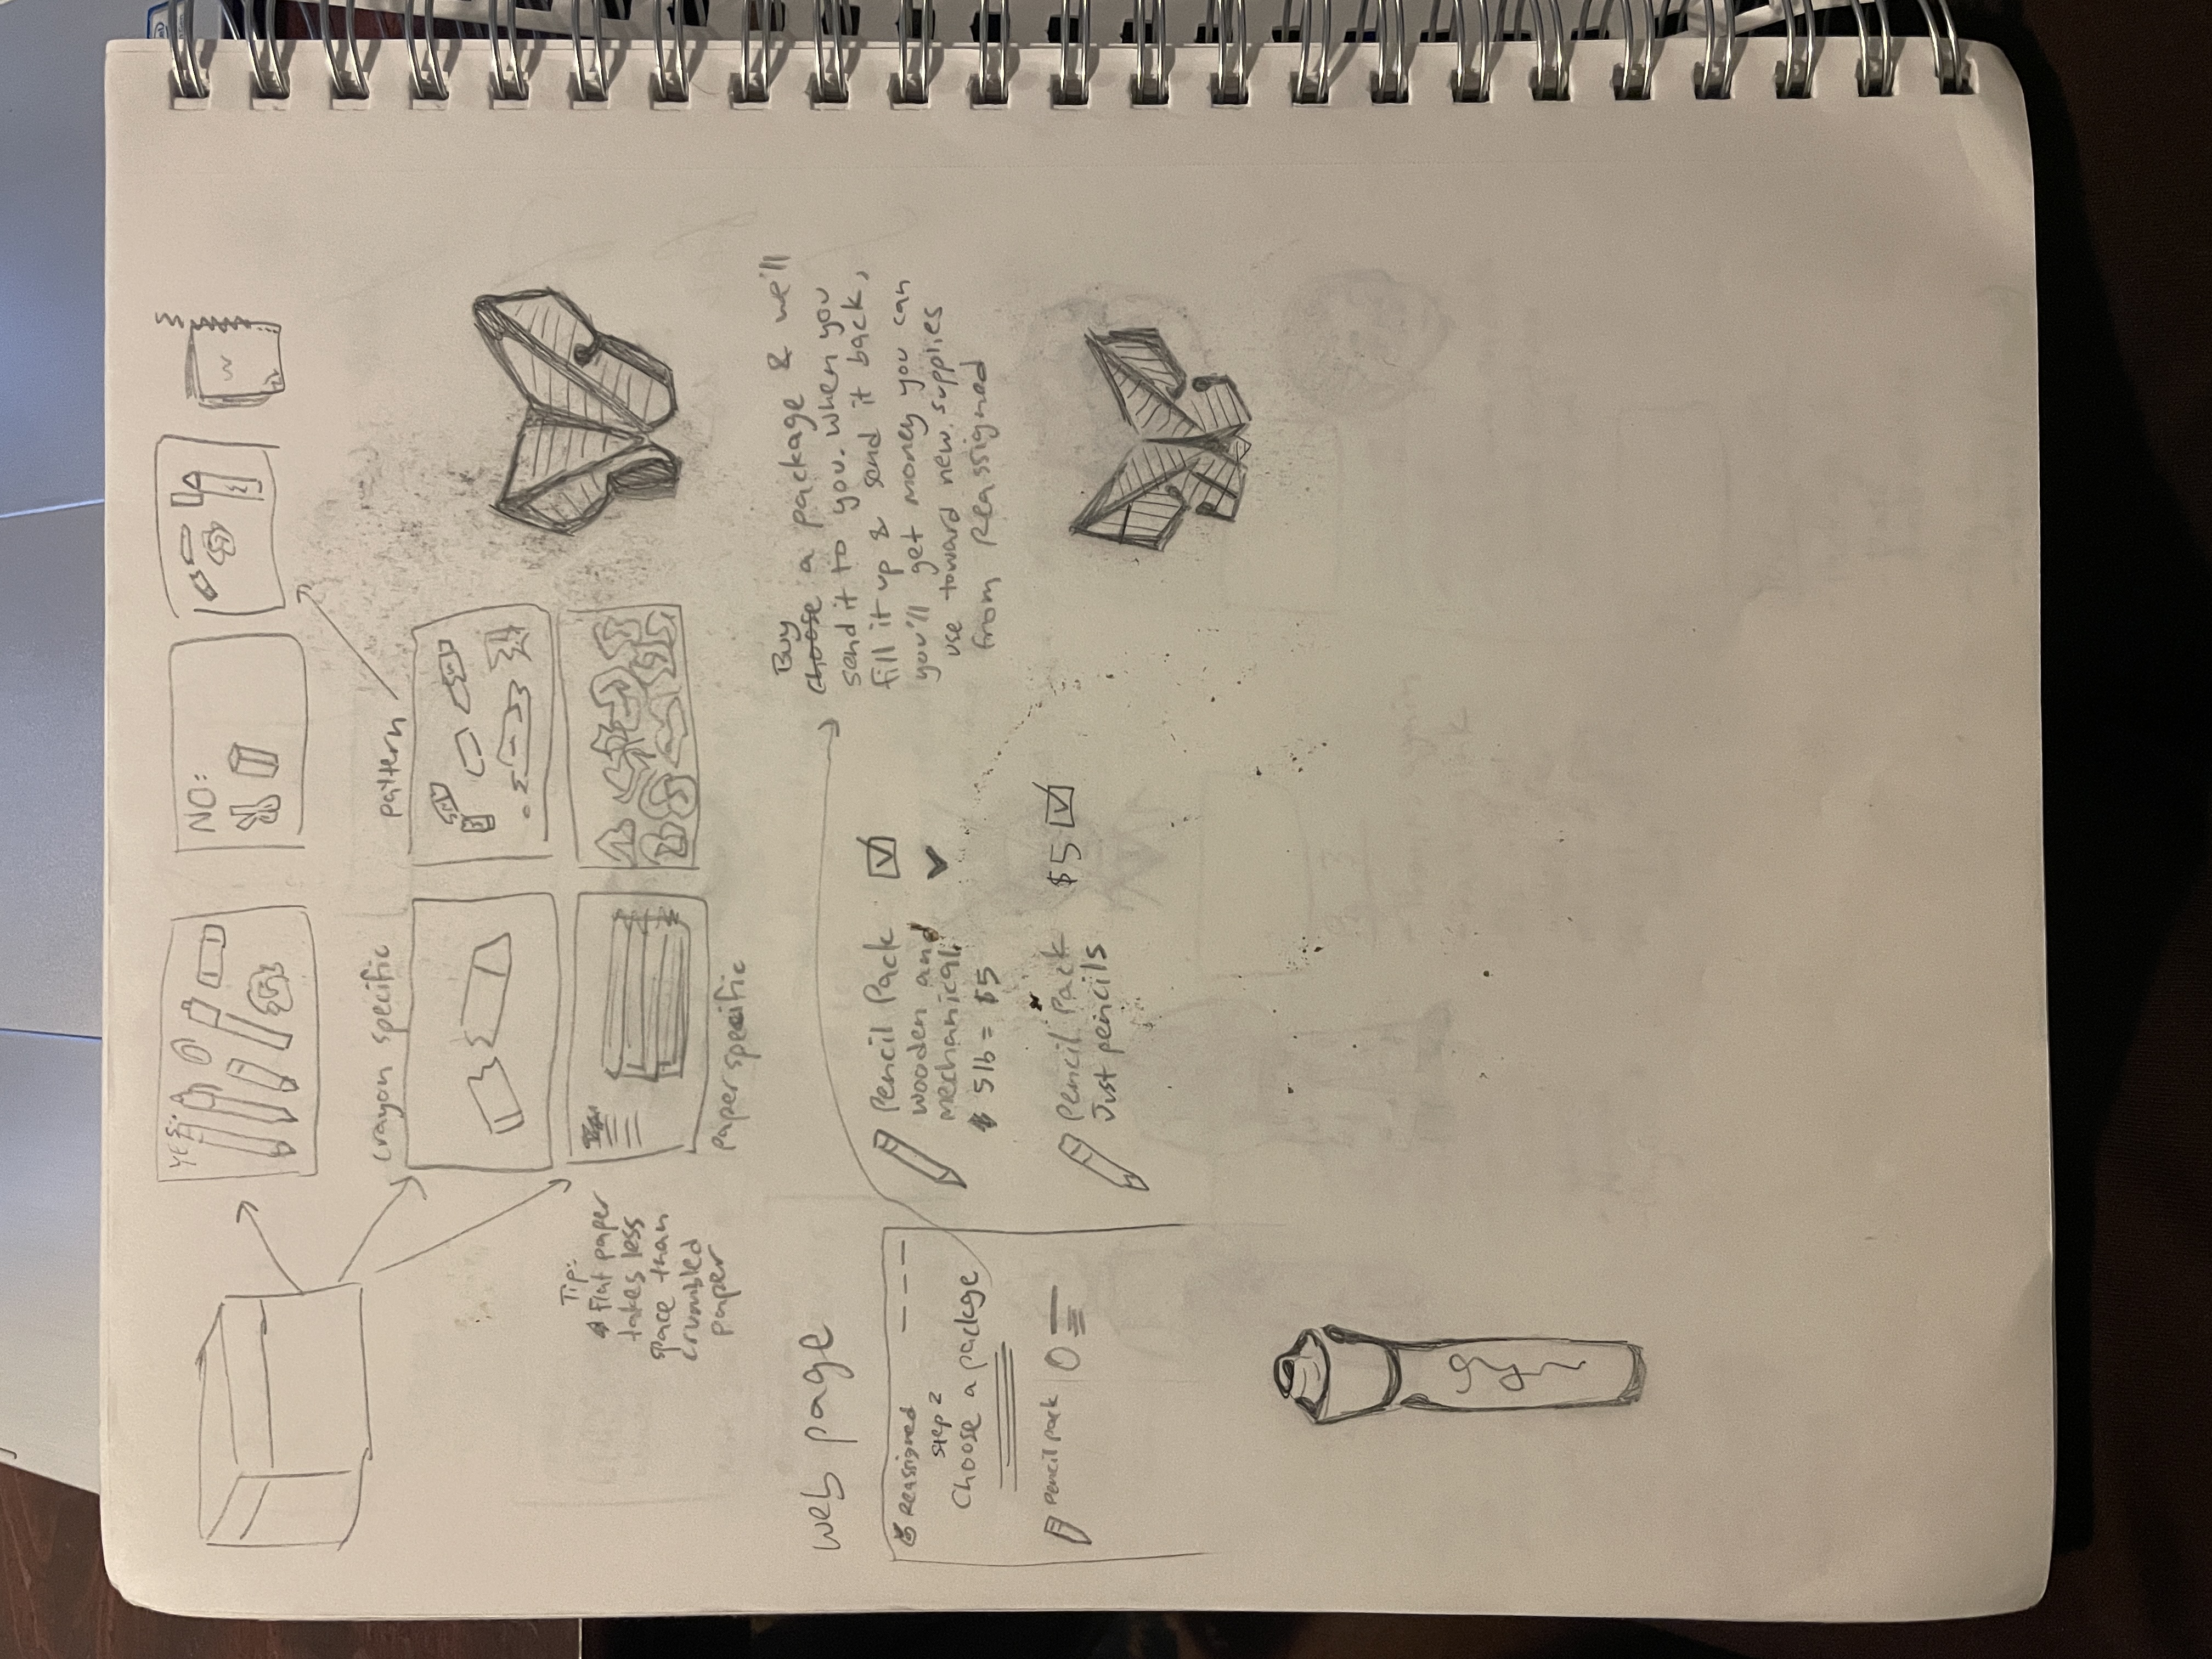 YES:
NO:
W
crayon specific
pattern
Tip:
flat paper
takes less
space than
crumbled
paper
paper specific
web page
Reassigned
step 2
Choose a packge
Pencil pack
Pencil Pack
wooden and
mechanical.
5lb = $5
Pencil Pack $5
Just pencils
Buy
choose a package & we'll
send it to you. When you
fill it up & send it back,
you'll get money you can
use toward new supplies
from Reassigned